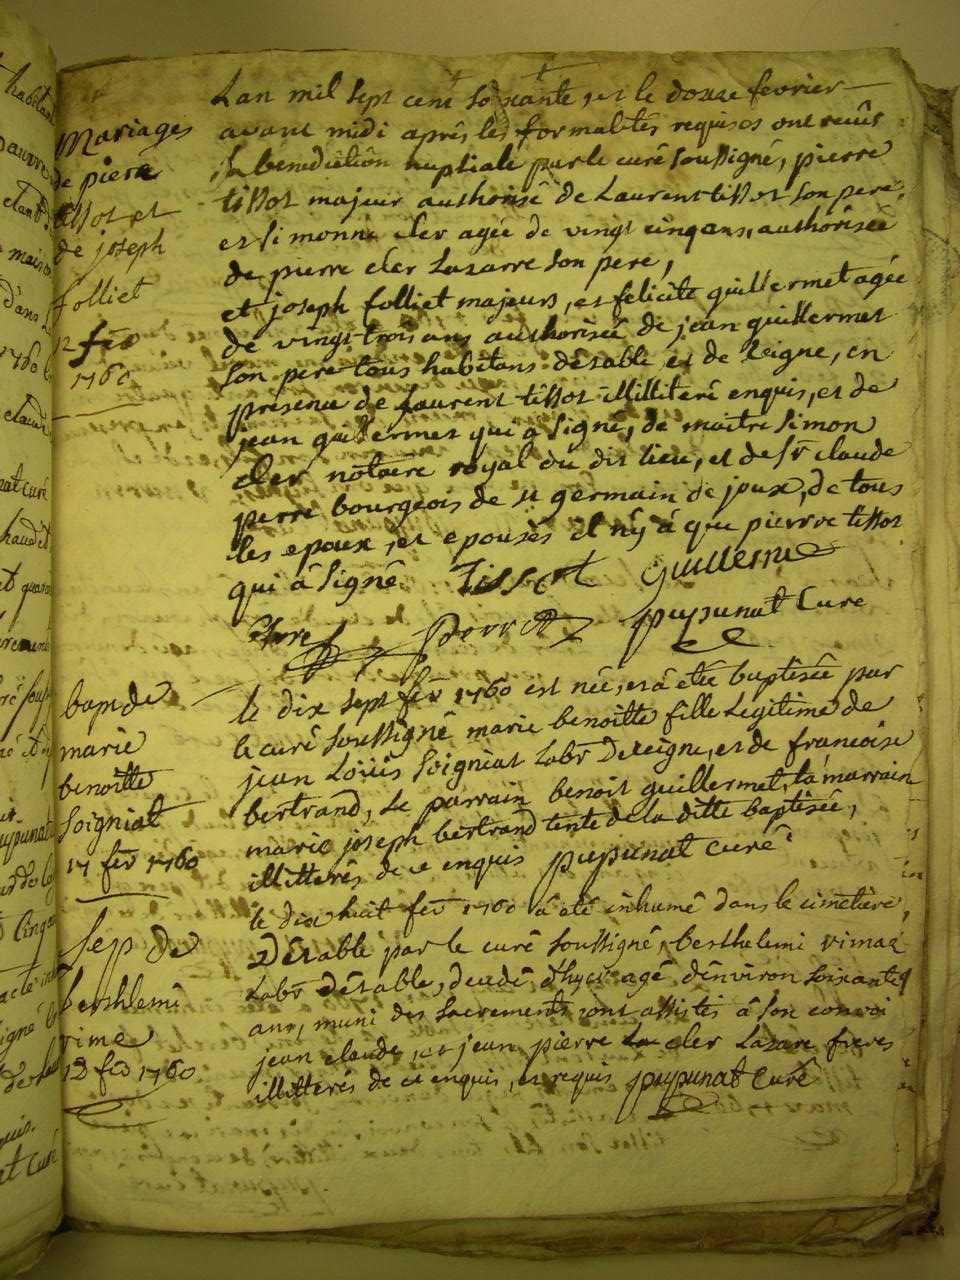 Mariages
de piere
tissot et
de joseph
folliet
12 fev
1760
Lan mil sept cent soixante, et le douze fevrier
avant midi après les formalités requises ont reçus
la benediction nuptiale par le curé soussigné, pierre
tissot majeur authorisé de Laurent tissot son pere,
et simonne cler agée de vingt cinq ans, authorisée
de pierre cler Lazarre son pere,
et joseph folliet majeurs, et felicité guillermet agée
de vingt trois ans authorisée de jean guillermet
son pere tous habitans désable et de Leigne, en
présence de Laurent tissot illiteré enquis, et de
jean guillermet qui a signé, de maitre simon
cler notaire royal du dit lieu, et de sr claude
perret bourgeois de st germain de joux, de tous
les epoux, et epouses il n'y à que pierre tissot
qui â signé. Tissot Guillerme
Perret pupunat Cure
bap de
marie
benoitte
soigniat
17 fev 1760
le dix sept fev 1760 est née, et â etée baptisée par
le curé soussigné marie benoitte fille Legitime de
jean Loüis soigniat Labr de Leigne, et de francoise
bertrand, Le parrain benoit guillermet, la marrain
marie joseph bertrand tente de la ditte baptisée,
illitterés de ce enquis pupunat curé
Sep de
berthlemi
vime
18 fev 1760
le dix huit fev 1760 â eté inhumé dans le cimetière,
Désable par le curé soussigné, berthelemi vimaz
Labr désable, decedé d'hyer agé dénviron soixante
ans, muni des sacrements, ont assistés â son convoi
jean claude, et jean pierre cler Lazare freres
illitterés de ce enquis, et requis pupunat Curé